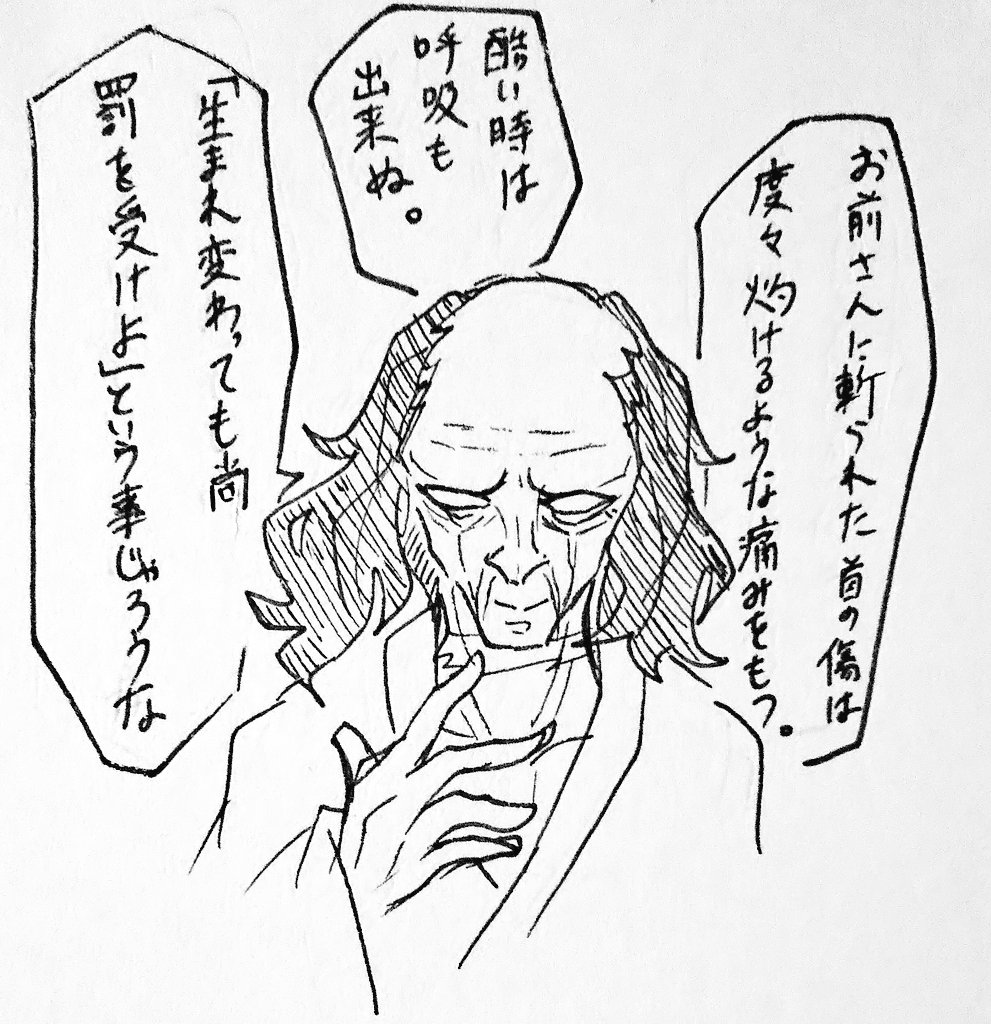 お前さんに斬られた首の傷は
度々灼けるような痛みをもつ。
酷い時は
呼吸も
出来ぬ。
「生まれ変わっても尚
罰を受けよ」という事じゃろうな